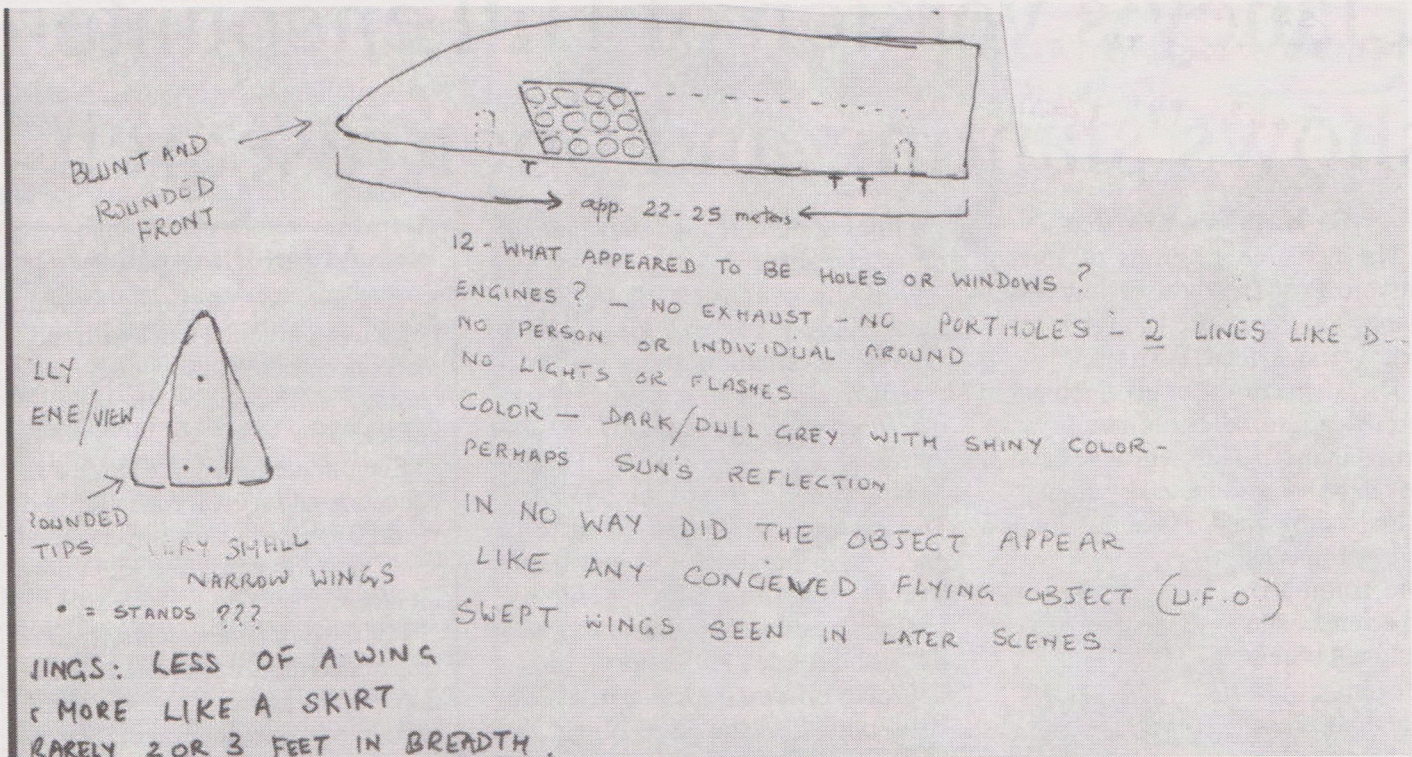 BLUNT AND
ROUNDED
FRONT
T
T T
app. 22-25 meters
12 - WHAT APPEARED TO BE HOLES OR WINDOWS?
ENGINES? - NO EXHAUST - NO PORTHOLES - 2 LINES LIKE D--
NO PERSON OR INDIVIDUAL AROUND
NO LIGHTS OR FLASHES
COLOR - DARK/DULL GREY WITH SHINY COLOR -
PERHAPS SUN'S REFLECTION
IN NO WAY DID THE OBJECT APPEAR
LIKE ANY CONCIEVED FLYING OBJECT (U.F.O.)
SWEPT WINGS SEEN IN LATER SCENES.
LLY
ENE/VIEW
ROUNDED
TIPS
VERY SMALL
NARROW WINGS
• = STANDS ???
INGS: LESS OF A WING
MORE LIKE A SKIRT
RARELY 2 OR 3 FEET IN BREADTH.